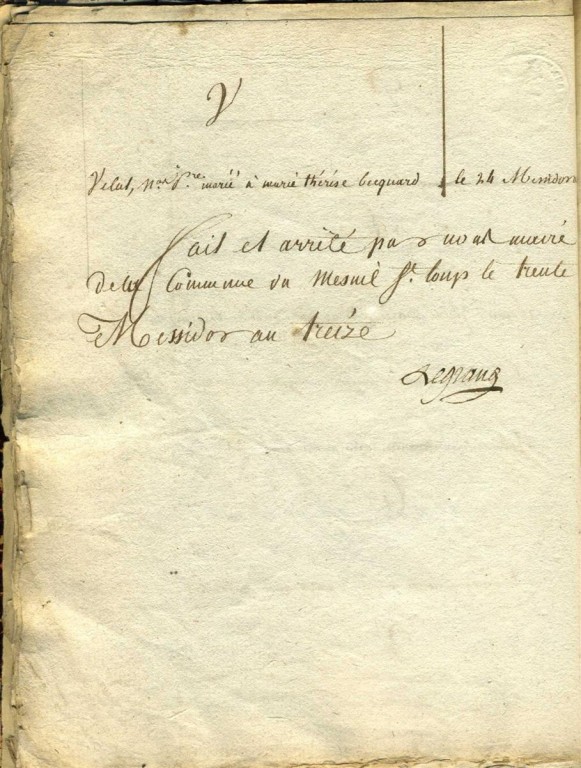 V
Velut, nas. Pre. marié à marie thérése becquard le 24 Messidor
fait et arrêté par nous maire
de la Commune du Mesnil St. loup le trente
Messidor an treize
Legrand